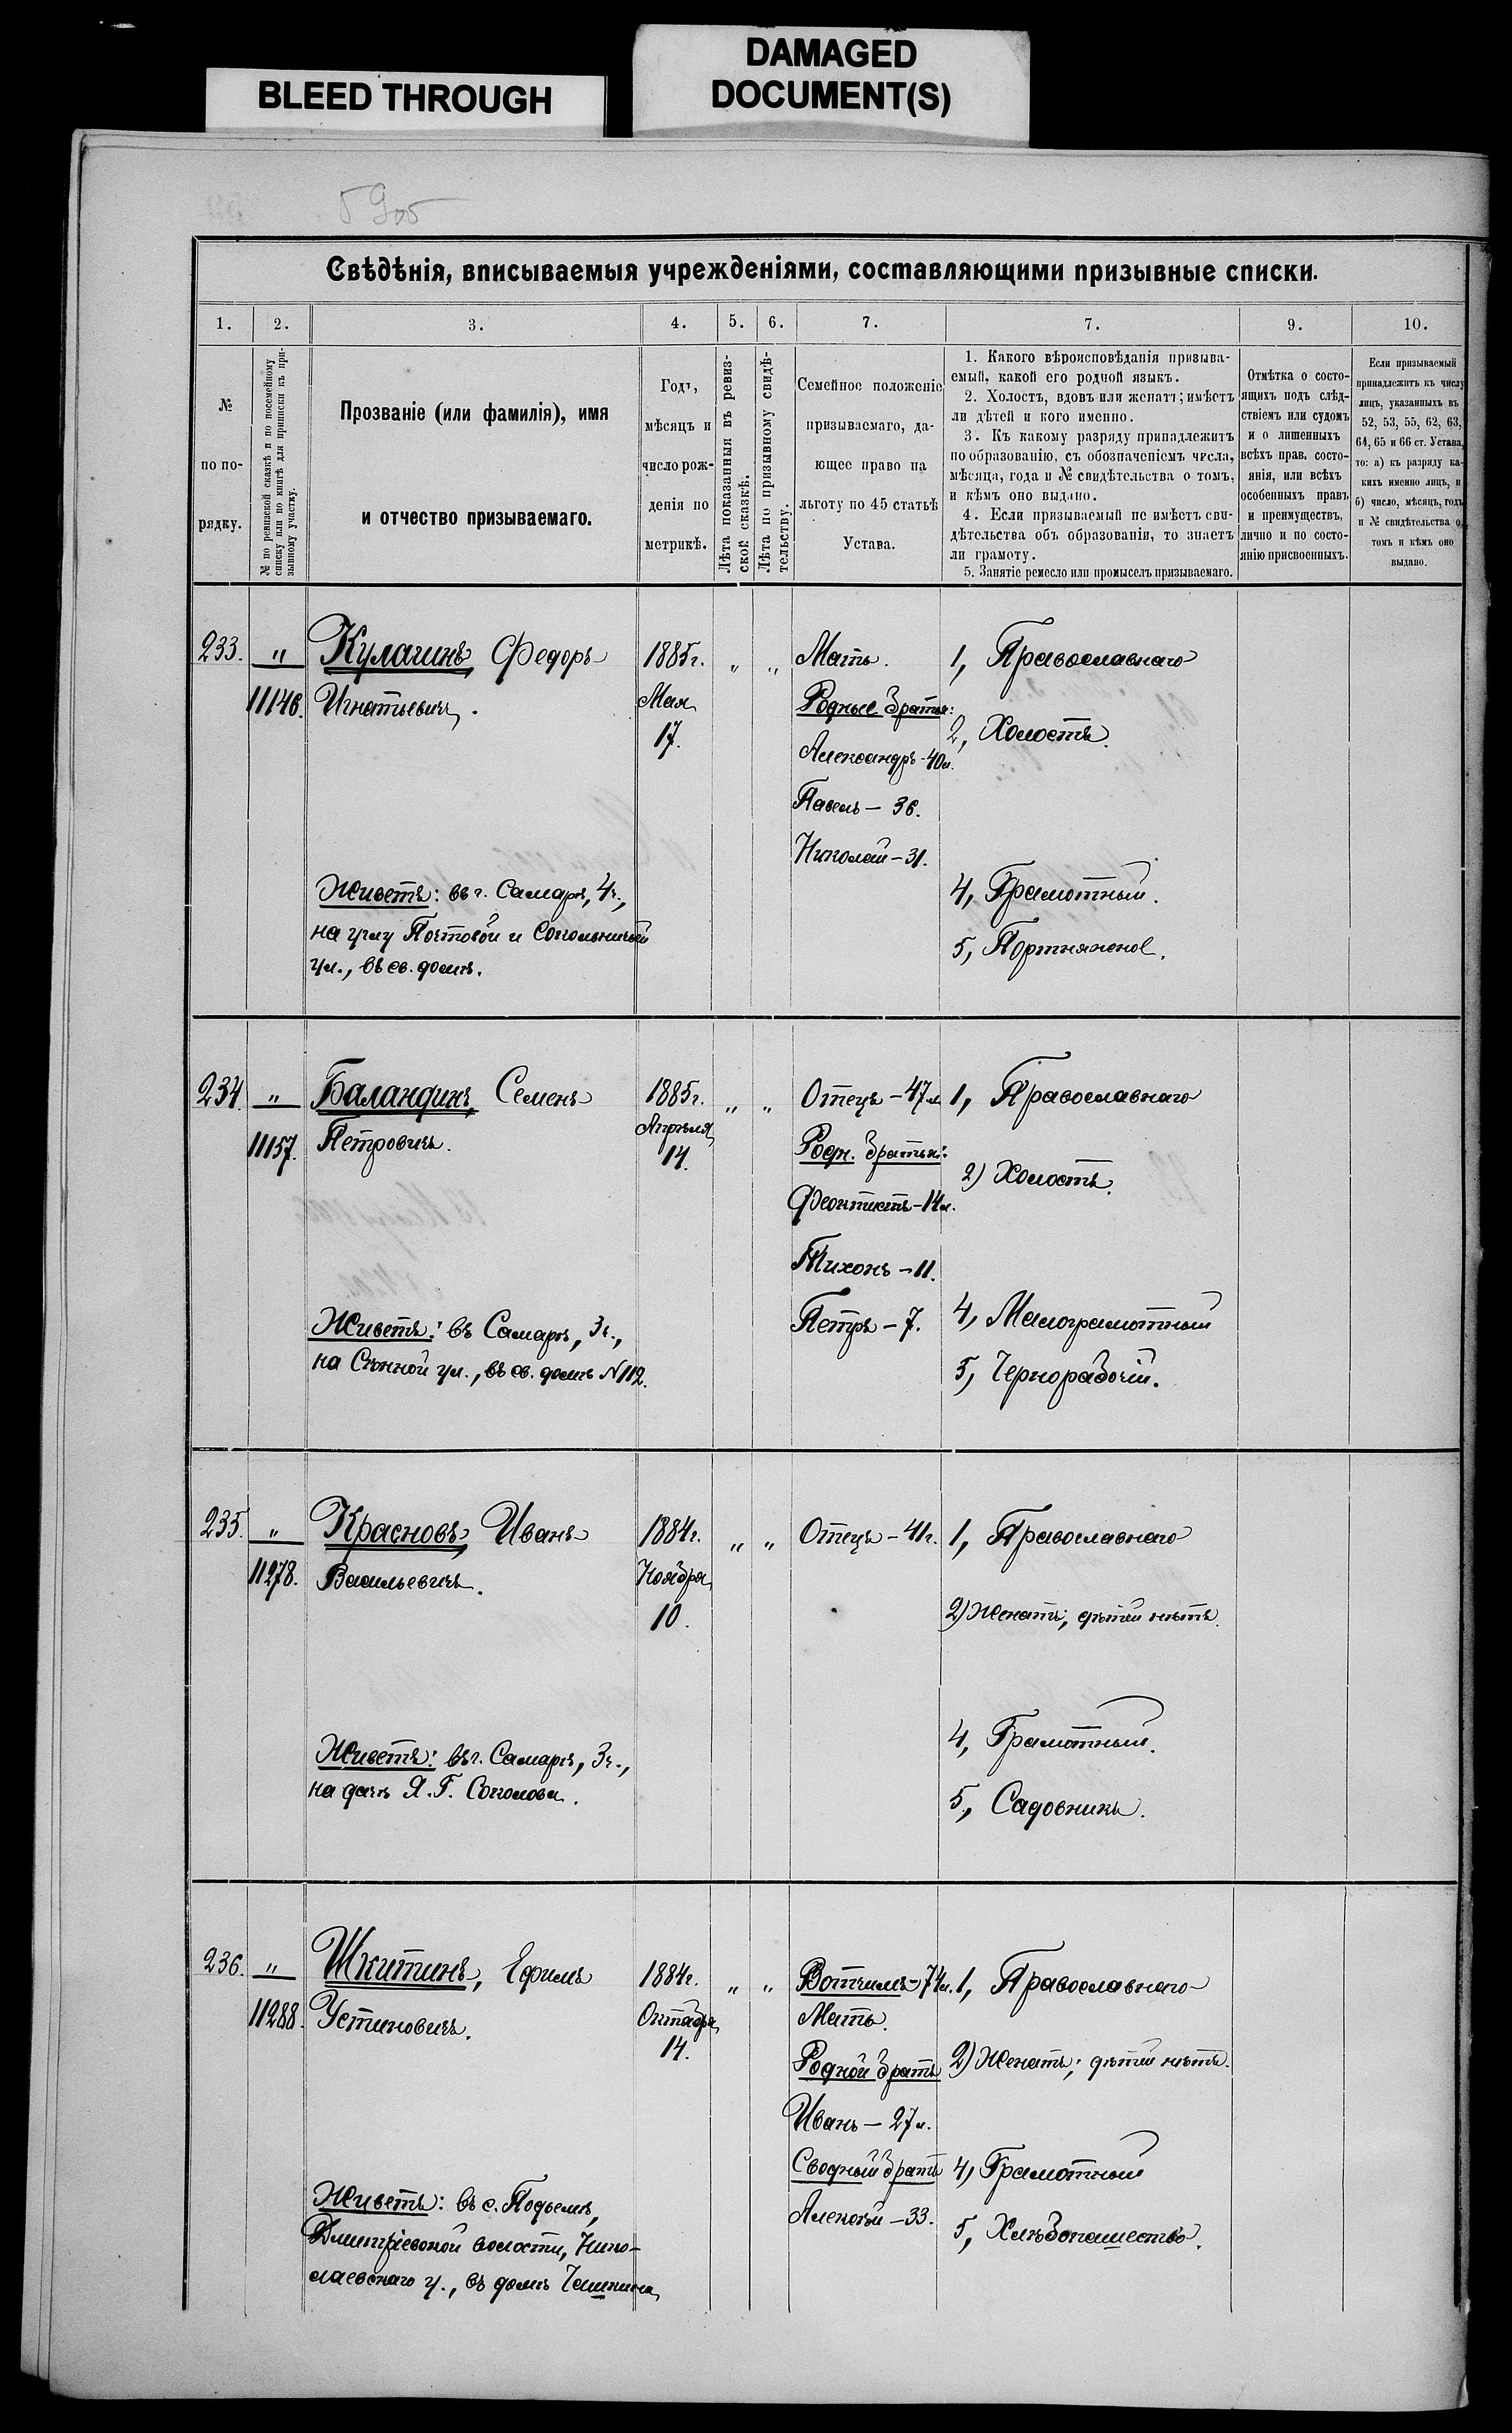 BLEED THROUGH
DAMAGED
DOCUMENT(S)
Свѣдѣнія, вписываемыя учрежденіями, составляющими призывные списки.
1.
2.
3.
4.
5.
6.
7.
7.
9.
10.
№
по по-
рядку.
№ по ревизской сказкѣ и по посемейному
списку или по книгѣ для приписки къ при-
зывному участку.
Прозваніе (или фамилія), имя
и отчество призываемаго.
Годъ,
мѣсяцъ и
число рож-
денія по
метрикѣ.
Лѣта показанныя въ ревиз-
ской сказкѣ.
Лѣта по призывному свидѣ-
тельству.
Семейное положеніе
призываемаго, да-
ющее право на
льготу по 45 статьѣ
Устава.
1. Какого вѣроисповѣданія призыва-
емый, какой его родной языкъ.
2. Холостъ, вдовъ или женатъ; имѣетъ
ли дѣтей и кого именно.
3. Къ какому разряду принадлежитъ
по образованію, съ обозначеніемъ числа,
мѣсяца, года и № свидѣтельства о томъ,
и кѣмъ оно выдано.
4. Если призываемый не имѣетъ сви-
дѣтельства объ образованіи, то знаетъ
ли грамоту.
5. Занятіе ремесло или промыселъ призываемаго.
Отмѣтка о состо-
ящихъ подъ слѣд-
ствіемъ или судомъ
и о лишенныхъ
всѣхъ прав, состо-
янія, или всѣхъ
особенныхъ правъ
и преимуществъ,
лично и по состо-
янію присвоенныхъ.
Если призываемый
принадлежитъ къ числу
лицъ, указанныхъ въ
52, 53, 55, 62, 63,
64, 65 и 66 ст. Устава,
то: а) къ разряду ка-
кихъ именно лицъ, и
б) число, мѣсяцъ, годъ
и № свидѣтельства о
томъ и кѣмъ оно
выдано.
233.
"
11146.
Кулагинъ, Федоръ
Игнатьевичъ.
1885г.
Мая
17.
"
"
Мать.
Родные братья:
Александръ - 40л.
Павелъ - 36.
Николай - 31.
1, Православнаго
2, Холостъ.
4, Грамотный.
5, Портняжной.
Живетъ: въ г. Самарѣ, 4ч.,
на углу Почтовой и Сокольничьей
ул., въ св. домѣ.
234.
"
11157.
Баландинъ, Семенъ
Петровичъ.
1885г.
Апрѣля
14.
"
"
Отецъ - 47л.
Родн. братья:
Феоктистъ - 14л.
Тихонъ - 11.
Петръ - 7.
1, Православнаго
2) Холостъ.
4, Малограмотный
5, Чернорабочій.
Живетъ: въ Самарѣ, 3ч.,
на Сѣнной ул., въ св. домѣ №112.
235.
"
11278.
Красновъ, Иванъ
Васильевичъ.
1884г.
Ноября
10.
"
"
Отецъ - 41г.
1, Православнаго
2) Женатъ; дѣтей нѣтъ.
4, Грамотный.
5, Садовникъ.
Живетъ: въ г. Самарѣ, 3ч.,
на дачѣ Я. Г. Соколова.
236.
"
11288.
Шкитинъ, Ефимъ
Устиновичъ.
1884г.
Октября
14.
"
"
Вотчимъ - 74л.
Мать.
Родной братъ
Иванъ - 27л.
Сводный братъ
Алексѣй - 33.
1, Православнаго
2) Женатъ; дѣтей нѣтъ.
4, Грамотный
5, Хлѣбопашество.
Живетъ: въ с. Подъемѣ,
Дмитріевской волости, Нико-
лаевскаго у., въ домѣ